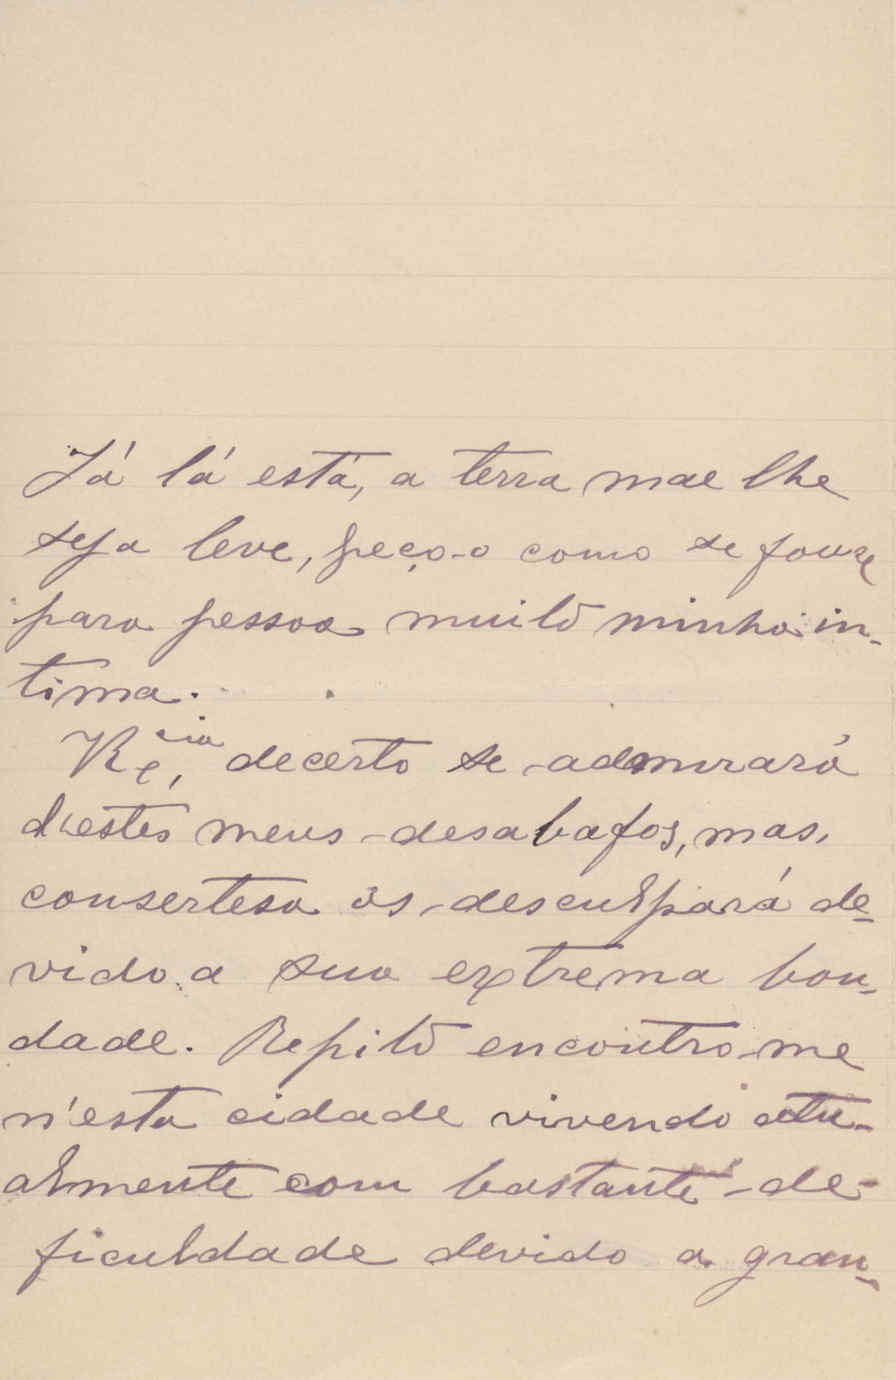 Já lá está, a terra mae lhe
seja leve, peço-o como se fouse
para pessoa muito minha in-
tima.
V. Ex.cia, decerto se admirará
d'estes meus desabafos, mas,
consertesa os desculpará de-
vido a sua extrema bon-
dade. Repito encontro-me
n'esta cidade vivendo atu-
almente com bastante de-
ficuldade devido a gran-